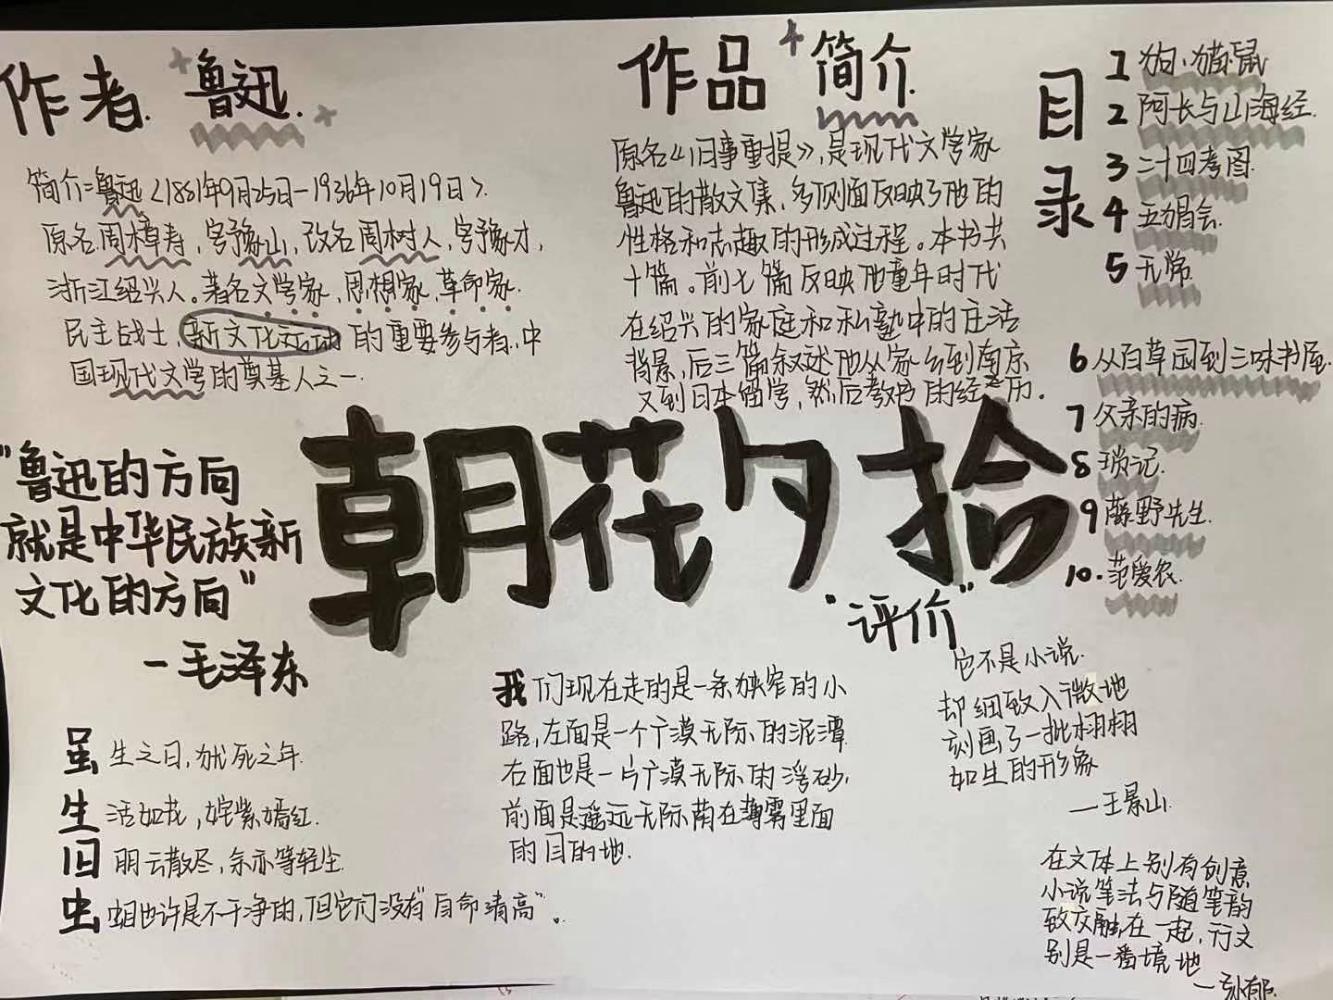 作者 鲁迅
简介:鲁迅(1881年9月25日-1936年10月19日).
原名周樟寿,字豫山,改名周树人,字豫才,
浙江绍兴人。著名文学家,思想家,革命家.
民主战士,新文化运动的重要参与者,中
国现代文学的奠基人之一.
作品简介
原名《旧事重提》,是现代文学家
鲁迅的散文集,多侧面反映了他的
性格和志趣的形成过程。本书共
十篇。前七篇反映他童年时代
在绍兴的家庭和私塾中的生活
背景,后三篇叙述他从家乡到南京
又到日本留学,然后教书的经历.
目录
1 狗·猫·鼠
2 阿长与山海经.
3 二十四孝图.
4 五猖会.
5 无常.
6 从百草园到三味书屋.
7 父亲的病.
8 琐记.
9 藤野先生.
10.范爱农.
朝花夕拾
"鲁迅的方向
就是中华民族新
文化的方向"
-毛泽东
虽生之日,犹死之年.
生活如花,姹紫嫣红.
旧朋云散尽,余亦等轻尘.
虫蛆也许是不干净的,但它们没有"自命清高"。
我们现在走的是一条狭窄的小
路,左面是一个广漠无际的泥潭
右面也是一片广漠无际的浮砂,
前面是遥远无际荫在薄雾里面
的目的地.
"评价"
它不是小说.
却细致入微地
刻画了一批栩栩
如生的形象
—王景山.
在文体上别有创意
小说笔法与随笔韵
致交融在一起,行文
别是一番境地
-孙郁.